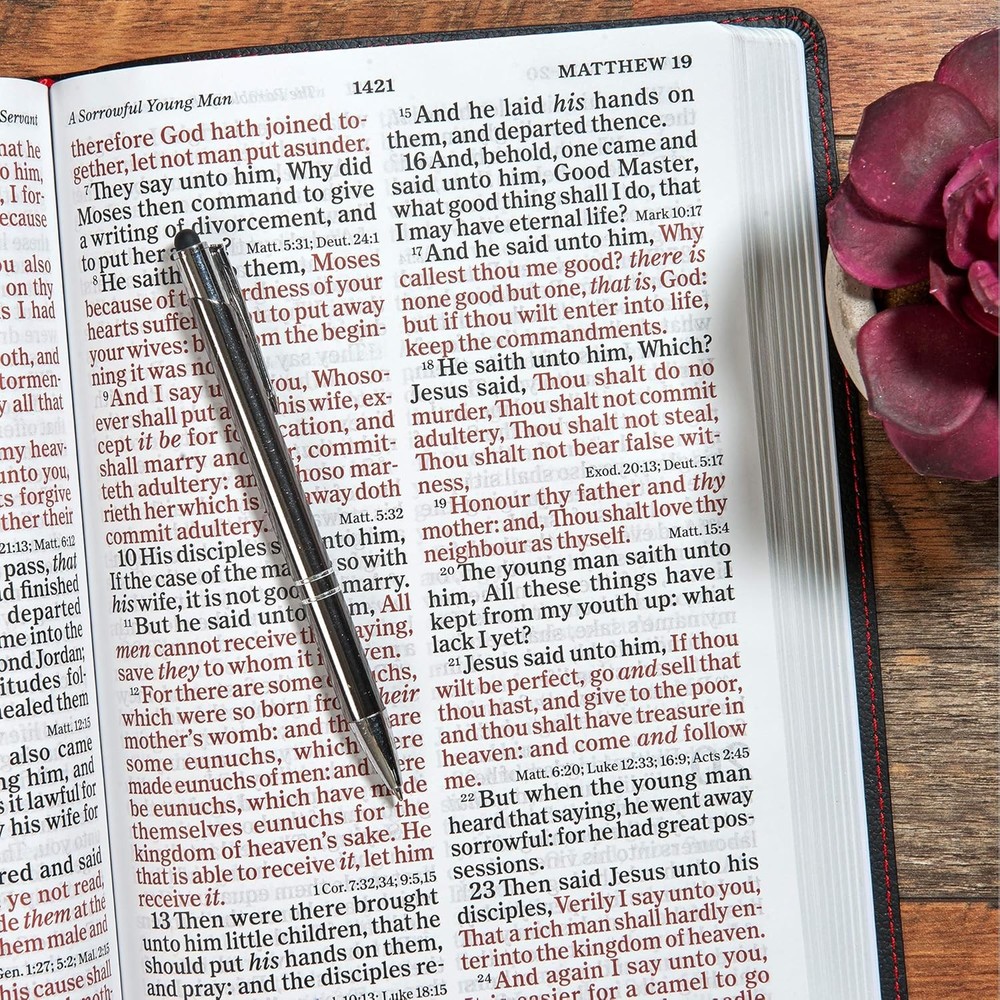 Servant
hat he
o him,
, I for-
ecause
ou also
on thy
s I had
oth, and
tormen-
y all that
my heav-
unto you,
ts forgive
ther their
21:13; Matt. 6:12
pass, that
d finished
departed
me into the
ond Jordan;
itudes fol-
healed them
Matt. 12:15
also came
ng him, and
s it lawful for
y his wife for
red and said
ye not read,
de them at the
hem male and
Gen. 1:27; 5:2; Mal. 2:15
his cause shall
A Sorrowful Young Man
1421
MATTHEW 19
therefore God hath joined to-
gether, let not man put asunder.
7 They say unto him, Why did
Moses then command to give
a writing of divorcement, and
to put her a ?
Matt. 5:31; Deut. 24:1
8 He saith them, Moses
because of t rdness of your
hearts suffe u to put away
your wives: b m the begin-
ning it was no
9 And I say u you, Whoso-
ever shall put a his wife, ex-
cept it be for fo cation, and
shall marry and commit-
teth adultery: an hoso mar-
rieth her which is away doth
commit adultery.
Matt. 5:32
10 His disciples s nto him,
If the case of the ma so with
his wife, it is not goo marry.
11 But he said unto m, All
men cannot receive th aying,
save they to whom it i ven.
12 For there are some chs,
which were so born fr their
mother's womb: and th are
some eunuchs, which ere
made eunuchs of men: and ere
be eunuchs, which have made
themselves eunuchs for the
kingdom of heaven's sake. He
that is able to receive it, let him
receive it.
1 Cor. 7:32,34; 9:5,15
13 Then were there brought
unto him little children, that he
should put his hands on them,
and pray: and the disciples re-
19:13; Luke 18:15
15 And he laid his hands on
them, and departed thence.
16 And, behold, one came and
said unto him, Good Master,
what good thing shall I do, that
I may have eternal life?
Mark 10:17
17 And he said unto him, Why
callest thou me good? there is
none good but one, that is, God:
but if thou wilt enter into life,
keep the commandments.
18 He saith unto him, Which?
Jesus said, Thou shalt do no
murder, Thou shalt not commit
adultery, Thou shalt not steal,
Thou shalt not bear false wit-
ness,
Exod. 20:13; Deut. 5:17
19 Honour thy father and thy
mother: and, Thou shalt love thy
neighbour as thyself.
Matt. 15:4
20 The young man saith unto
him, All these things have I
kept from my youth up: what
lack I yet?
21 Jesus said unto him, If thou
wilt be perfect, go and sell that
thou hast, and give to the poor,
and thou shalt have treasure in
heaven: and come and follow
me.
Matt. 6:20; Luke 12:33; 16:9; Acts 2:45
22 But when the young man
heard that saying, he went away
sorrowful: for he had great pos-
sessions.
23 Then said Jesus unto his
disciples, Verily I say unto you,
That a rich man shall hardly en-
ter into the kingdom of heaven.
24 And again I say unto you,
easier for a camel to go